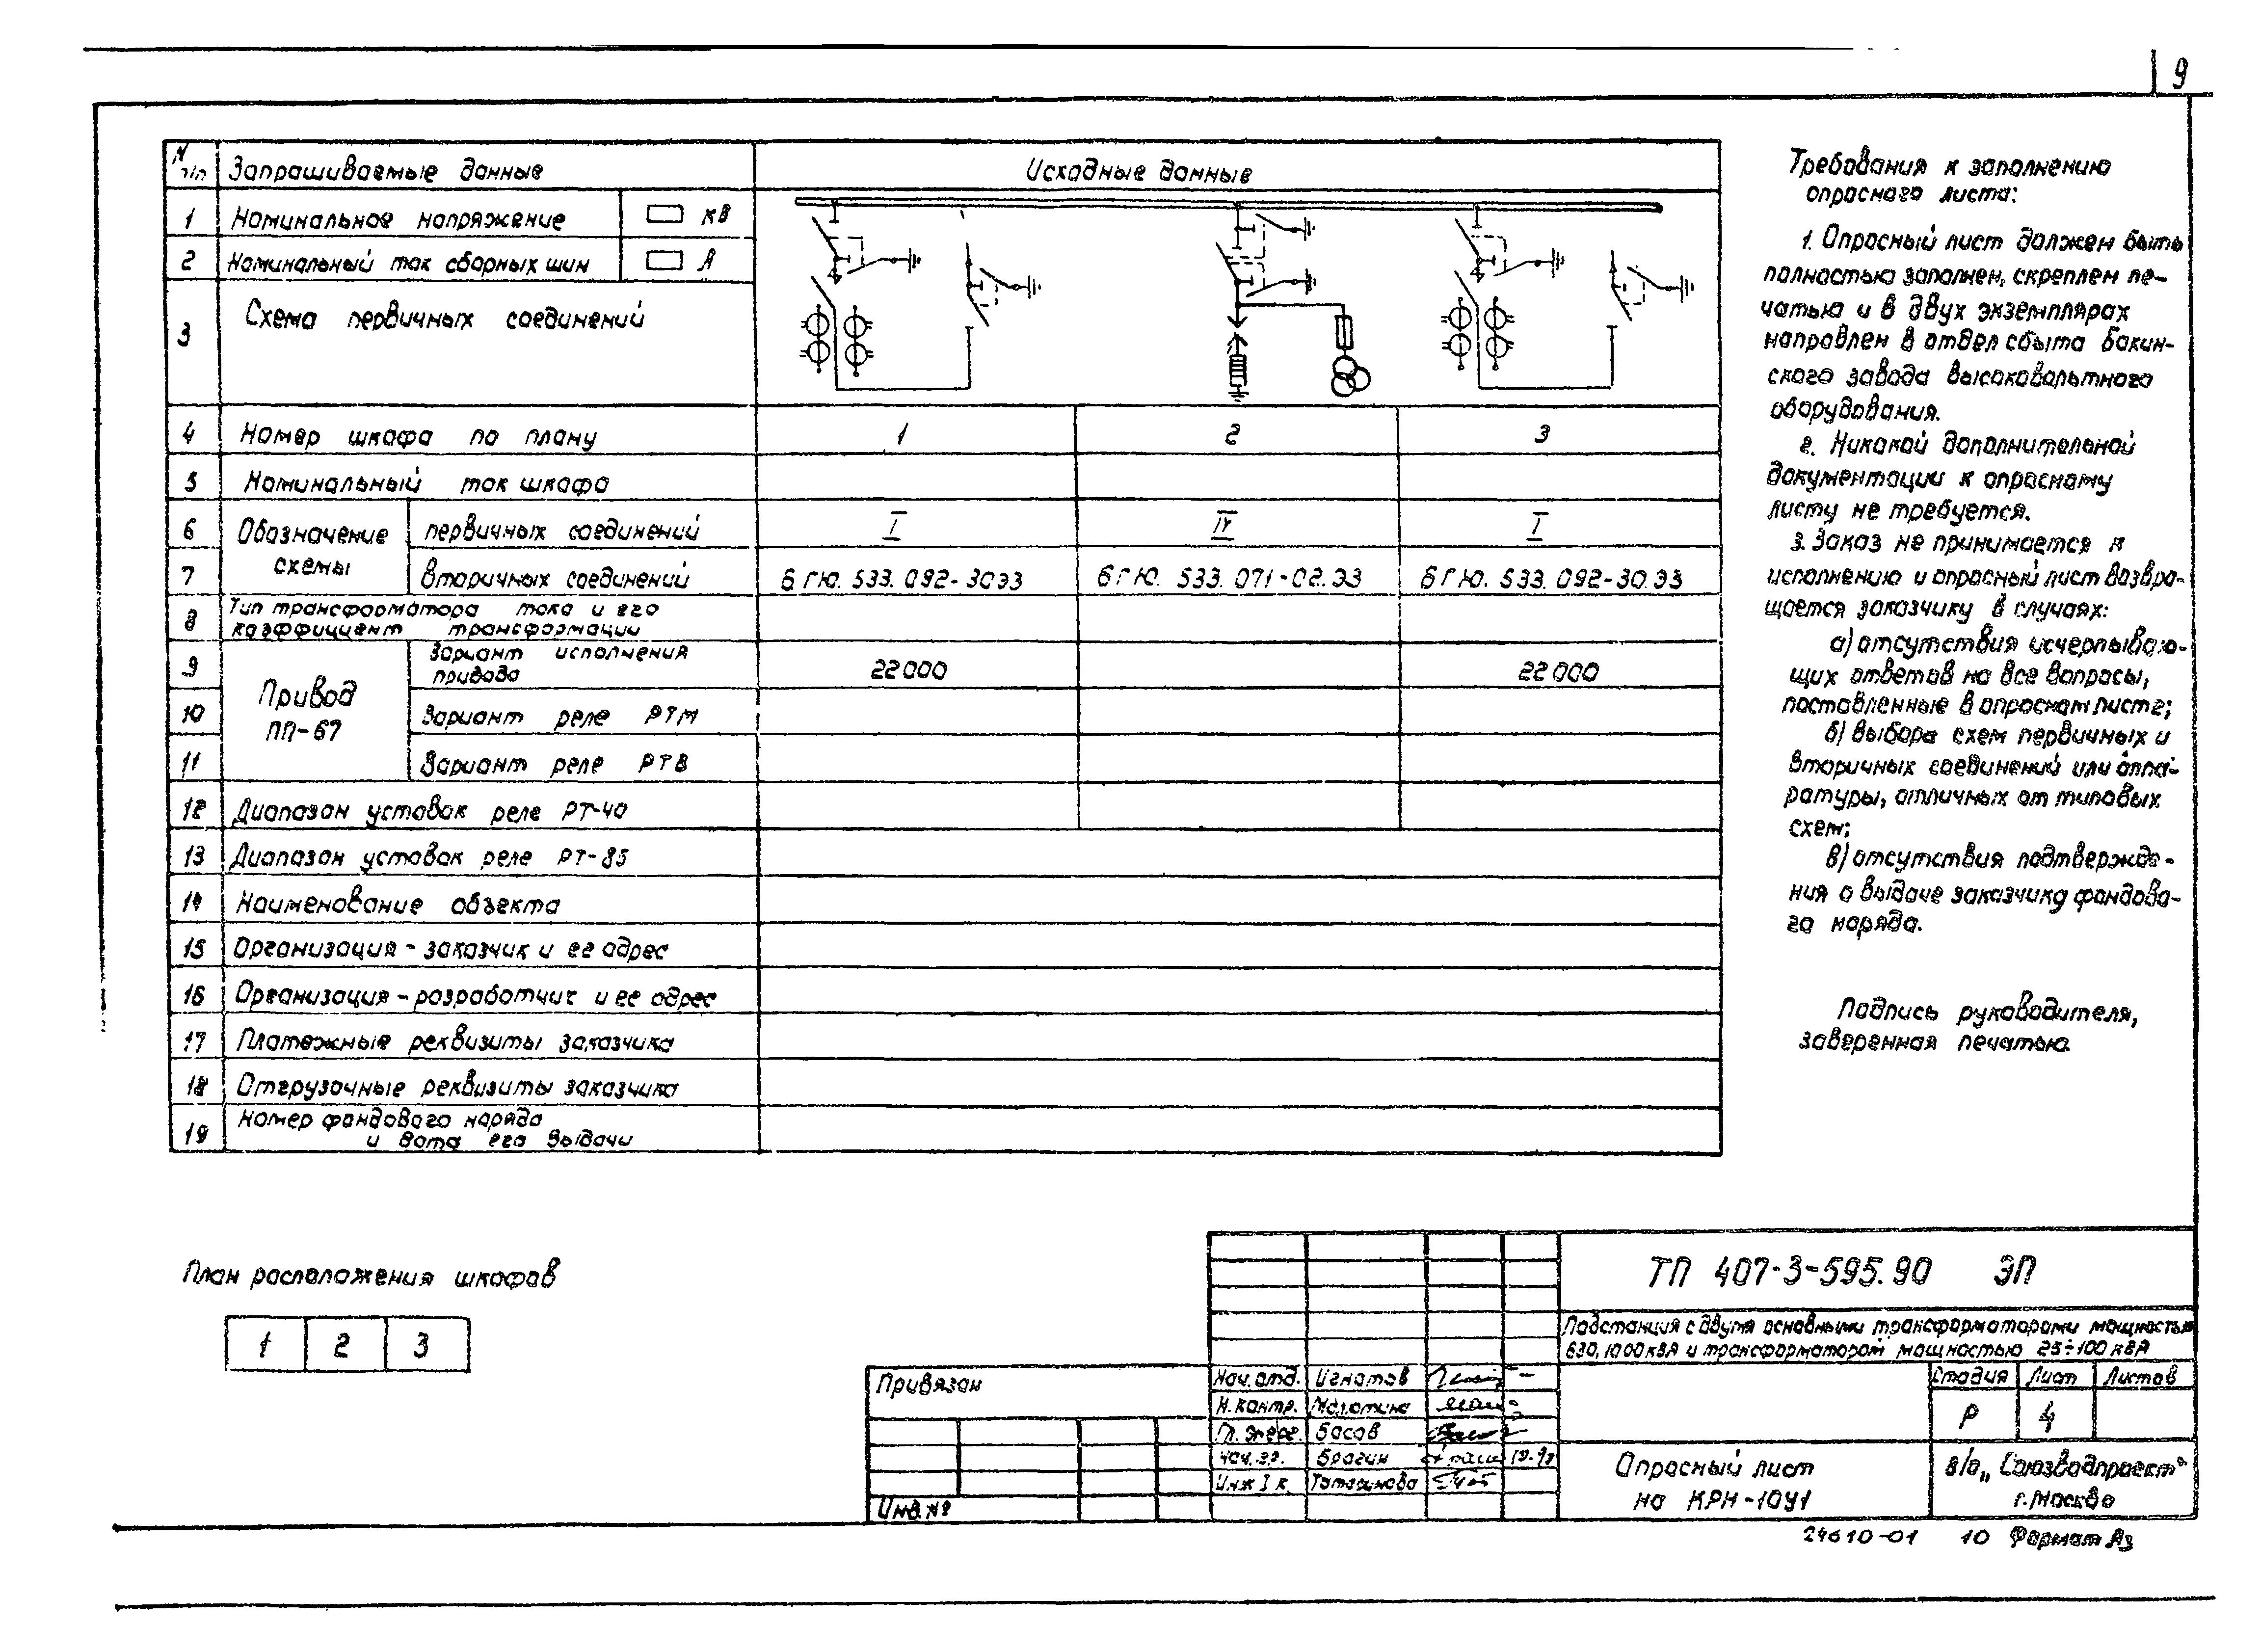 9
N п/п Запрашиваемые данные Исходные данные
1 Номинальное напряжение кВ
2 Номинальный ток сборных шин А
3 Схема первичных соединений
4 Номер шкафа по плану 1 2 3
5 Номинальный ток шкафа
Обозначение схемы
6 первичных соединений I IV I
7 вторичных соединений 6ГЮ.533.092-30ЭЗ 6ГЮ.533.071-02.ЭЗ 6ГЮ.533.092-30.ЭЗ
8 Тип трансформатора тока и его
коэффициент трансформации
Привод
ПП-67
9 Вариант исполнения
привода 22000 22000
10 Вариант реле РТМ
11 Вариант реле РТВ
12 Диапазон уставок реле РТ-40
13 Диапазон уставок реле РТ-85
14 Наименование объекта
15 Организация - заказчик и ее адрес
16 Организация - разработчик и ее адрес
17 Платежные реквизиты заказчика
18 Отгрузочные реквизиты заказчика
19 Номер фондового наряда
и дата его выдачи
Требования к заполнению
опросного листа:
1. Опросный лист должен быть
полностью заполнен, скреплен пе-
чатью и в двух экземплярах
направлен в отдел сбыта Бакин-
ского завода высоковольтного
оборудования.
2. Никакой дополнительной
документации к опросному
листу не требуется.
3. Заказ не принимается к
исполнению и опросный лист возвра-
щается заказчику в случаях:
а) отсутствия исчерпываю-
щих ответов на все вопросы,
поставленные в опросном листе;
б) выбора схем первичных и
вторичных соединений или аппа-
ратуры, отличных от типовых
схем;
в) отсутствия подтвержде-
ния о выдаче заказчику фондово-
го наряда.
Подпись руководителя,
заверенная печатью.
План расположения шкафов
1 2 3
Привязан
Инв. №
Нач. отд. Игнатов
Н. контр. Малютина
Гл. энерг. Басов
Нач. гр. Брагин
Инж I к. Татаринова
ТП 407-3-595.90 ЭП
Подстанция с двумя основными трансформаторами мощностью
630, 1000 кВА и трансформатором мощностью 25÷100 кВА
Стадия Лист Листов
Р 4
Опросный лист
на КРН-10У1
В/О „Союзводпроект"
г. Москва
24610-01 10 Формат А3